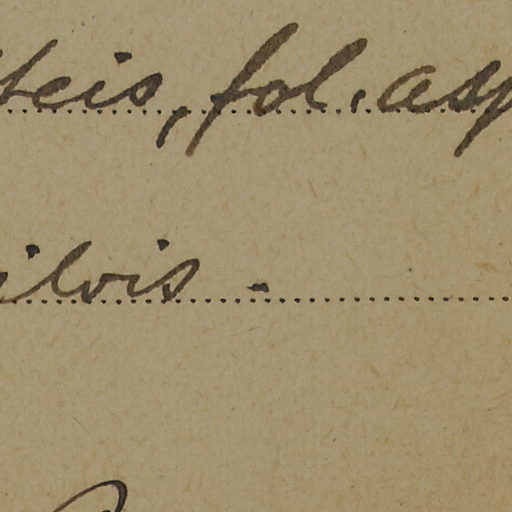 teis, fol. asp
ilvis.